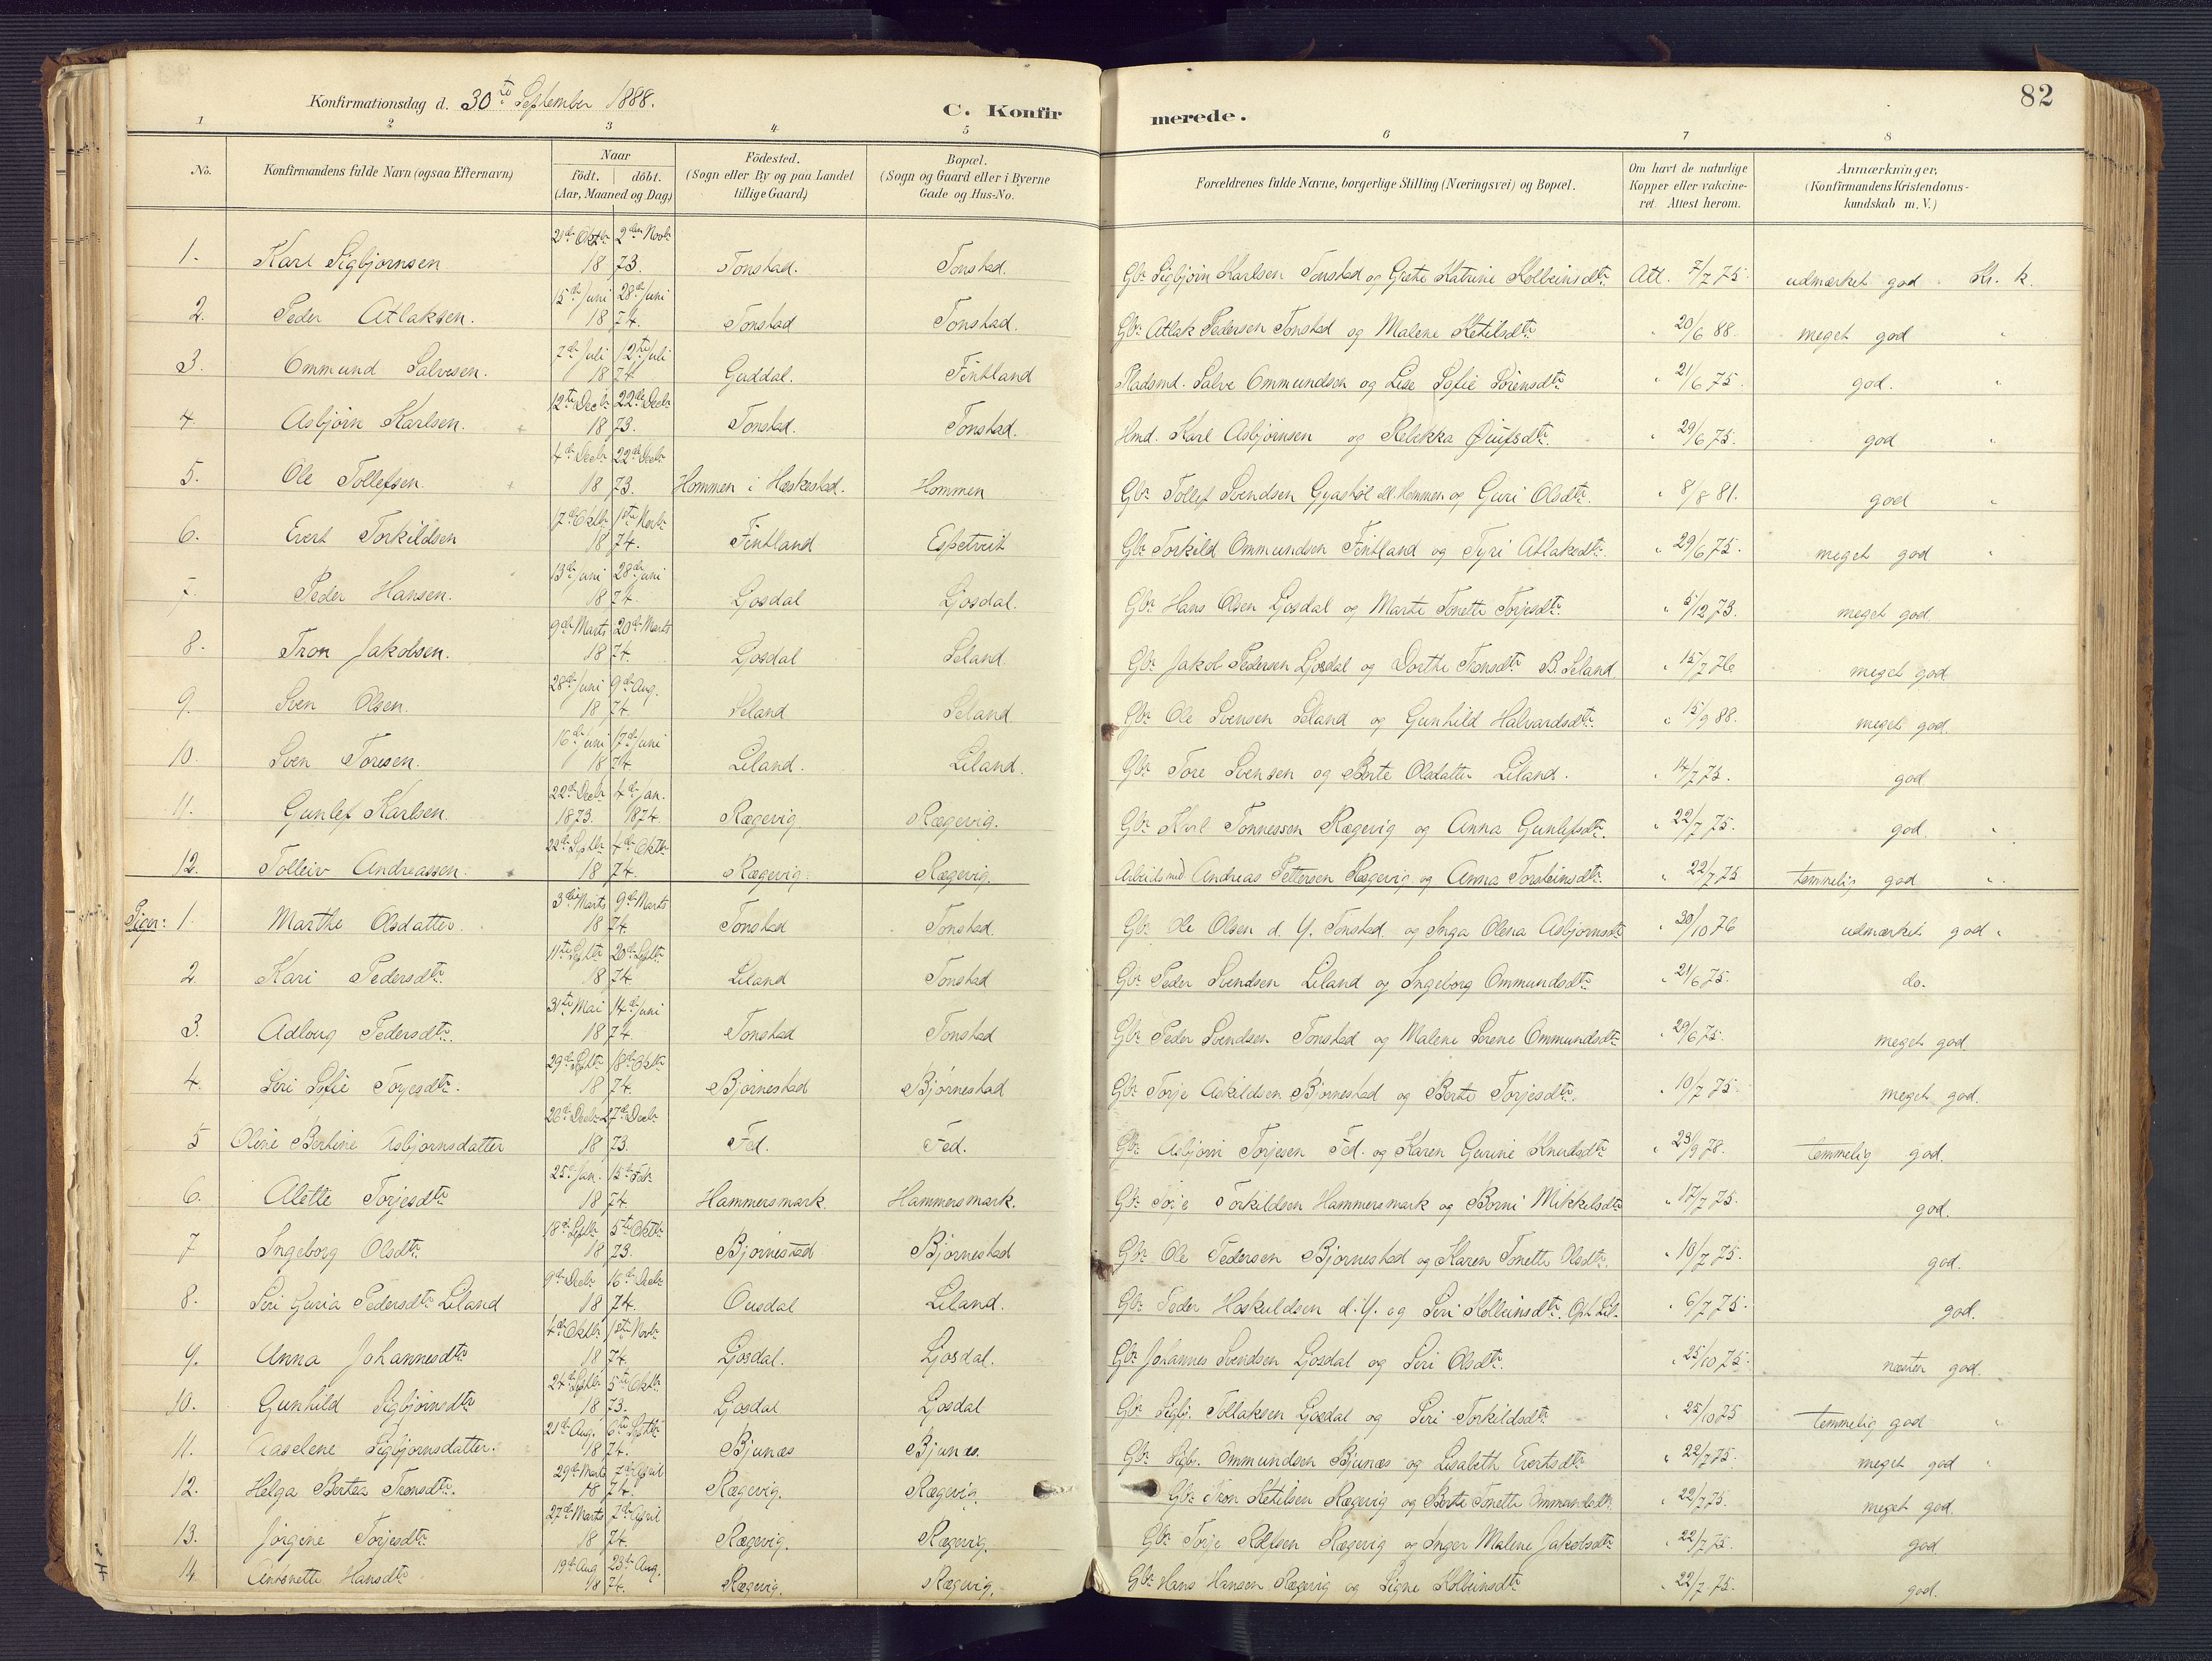 82
Konfirmationsdag d. 30te September 1888.
C. Konfirmerede.
1 2 3 4 5 6 7 8
No.
Konfirmandens fulde Navn (ogsaa Efternavn)
Naar
födt. | döbt.
(Aar, Maaned og Dag)
Födested.
(Sogn eller By og paa Landet
tillige Gaard)
Bopæl.
(Sogn og Gaard eller i Byerne
Gade og Hus-No.
Forældrenes fulde Navne, borgerlige Stilling (Næringsvei) og Bopæl.
Om havt de naturlige
Kopper eller vakcine-
ret. Attest herom.
Anmærkninger,
(Konfirmandens Kristendoms-
kundskab m. V.)
1. Karl Sigbjørnsen 21de Oktbr 2den Novbr 1873. Tonstad. Tonstad. Gbr Sigbjørn Karlsen Tonstad og Grethe Katrine Kolbeinsdtr. Att. 7/7 75. udmærket god Kr. k.
2. Peder Atlaksen. 15de Juni 28de Juni 1874. Tonstad Tonstad. Gbr. Atlak Pedersen Tonstad og Malene Ketilsdtr. " 20/6 88. meget god "
3. Ommund Salvesen. 7de Juli 12te Juli 1874 Gaddal. Fintland Pladsmd. Salve Ommundsen og Lise Sofie Sørensdtr " 21/6 75. god. "
4. Asbjørn Karlsen. 12te Decbr 22de Decbr 1873. Tonstad. Tonstad. Hmd. Karl Asbjørnsen og Rebekka " 29/6 75. god "
5. Ole Tollefsen. 4de Decbr 22de Decbr 1873. Hommen i Hæskestad. Hommen Gbr Tollef Svendsen Hommen og Guri Olsdtr. " 8/8 81. god "
6. Evert Torkildsen 17de Oktbr 1ste Novbr 1874. Fintland Espetveit Gbr Torkild Ommundsen Fintland og Tyri Atlaksdtr. " 29/6 75. meget god "
7. Peder Hansen. 13de Juni 28de Juni 1874. Ljosdal Ljosdal. Gbr Hans Olsen Ljosdal og Marte Tonette Torjesdtr. " 5/12 73. meget god.
8. Tron Jakobsen. 9de Marts 20de Marts 1874. Ljosdal Seland. Gbr Jakob Pedersen Ljosdal og Dorthe Tronsdtr B. Seland " 15/7 76 meget god
9. Sven Olsen. 28de Juni 9de Aug. 1874. Seland Seland. Gbr Ole Svensen Seland og Gunhild Halvardsdtr. " 15/9 88. meget god.
10. Sven Toresen. 16de Juni 17de Juni 1874 Liland. Liland. Gbr Tore Svensen og Berte Olsdatter Liland. " 14/7 75. god
11. Gunlef Karlsen. 22de Decbr 4de Jan. 1873. 1874. Rægevig Rægevig. Gbr Karl Tønnessen Rægevig og Anna Gunlefsdtr. " 22/7 75. god. "
12. Tolleiv Andreassen. 22de Septbr 4de Oktbr 1874. Rægevig. Rægevig. Arbeidsmd Andreas Pettersen Rægevig og Anna Torsteinsdtr. " 22/7 75 temmelig god "
Piger: 1. Marthe Olsdatter. 3die Marts 9de Marts 1874. Tonstad Tonstad. Gbr Ole Olsen d. Y. Tonstad og Inga Olena Asbjørnsdtr " 30/10 76 udmærket god "
2. Kari Pedersdtr. 11te Septbr 20de Septbr 1874 Liland Tonstad Gbr Peder Svendsen Liland og Ingeborg Ommundsdtr " 21/6 75. do.
3. Adlaug Pedersdtr. 31te Mai 14de Juni 1874. Tonstad Tonstad Gbr Peder Svendsen Tonstad og Malene Serene Ommundsdtr " 29/6 75. meget god
4. Siri Sofie Torjesdtr. 29de Septbr 18de Oktbr 1874. Bjørnestad Bjørnestad Gbr Torje Askildsen Bjørnestad og Berte Torjesdtr. " 10/7 75 meget god.
5 Oline Bertine Asbjørnsdatter 26de Decbr 27de Decbr 1873. Fed. Fed. Gbr Asbjørn Torjesen Fed. og Karen Gurine Knudsdtr " 23/9 78. temmelig god.
6. Alette Torjesdtr 25de Jan. 15de Febr 1874 Hammersmark. Hammersmark. Gbr Torje Torkildsen Hammersmark og Borni Mikkelsdtr " 17/7 75. god.
7 Ingeborg Olsdtr. 18de Septbr 5te Oktbr 1873. Bjørnestad Bjørnestad Gbr Ole Pedersen Bjørnestad og Karen Tonette Olsdtr. " 10/7 75. god.
8. Siri Guria Pedersdtr Liland 9de Decbr 16de Decbr 1874. Ousdal Liland. Gbr Peder Hoskuldsen d. Y. og Siri Kolbeinsdtr. " 6/7 75. god.
9. Anna Johannesdtr 4de Oktbr 1ste Novbr 1874. Ljosdal. Ljosdal. Gbr Johannes Svendsen Ljosdal og Siri Olsdtr. " 25/10 75. næsten god.
10. Gunhild Sigbjørnsdtr 24de Septbr 5te Oktbr 1873. Ljosdal Ljosdal Gbr Sigbj. Tollaksen Ljosdal og Siri Torkildsdtr. " 25/10 75 temmelig god "
11. Aaselene Sigbjørnsdatter. 21de Aug. 6te Septbr 1874. Bjunæs Bjunæs. Gbr Sigbr. Ommundsen Bjunæs og Lisabeth Evertsdtr " 22/7 75. meget god "
12. Helga Bertea Tronsdtr. 29de Marts 7de April 1874. Rægevig. Rægevig. Gbr Tron Ketilsen Rægevig og Berte Tonette Ommundsdtr. " 22/7 75. meget god.
13. Jørgine Torjesdtr. 27de Marts 7de April 1874. Rægevig. Rægevig. Gbr Torje Rolfsen Rægevig og Inger Malene Jakobsdtr " 22/7 75. god
14 Antonette Hansdtr 19de Aug 23de Aug. 1874. Rægevig. Rægevig. Gbr Hans Hansen Rægevig og Signe Kolbeinsdtr " 22/7 75. god.